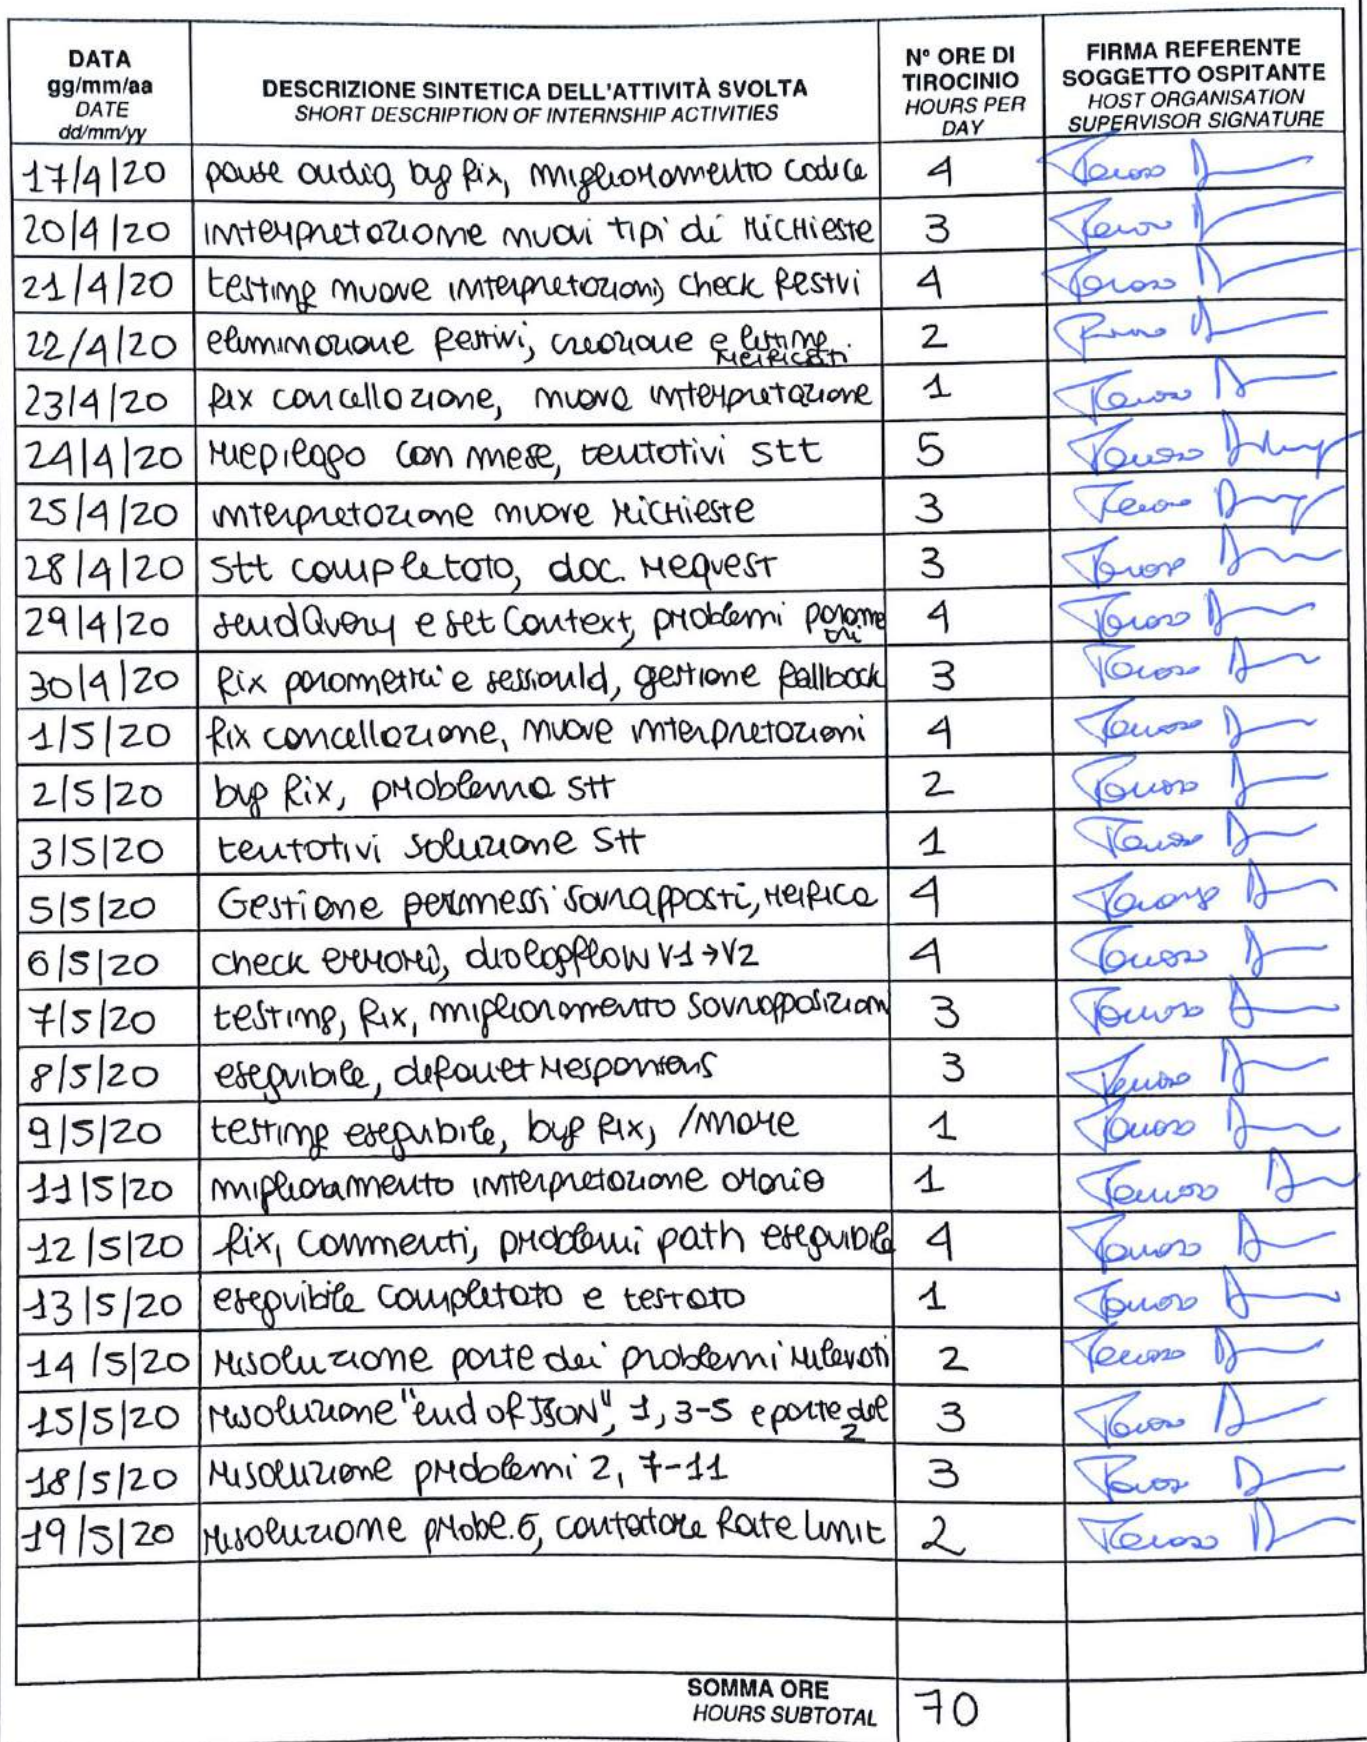 DATA
gg/mm/aa
DATE
dd/mm/yy
DESCRIZIONE SINTETICA DELL'ATTIVITÀ SVOLTA
SHORT DESCRIPTION OF INTERNSHIP ACTIVITIES
N° ORE DI
TIROCINIO
HOURS PER
DAY
FIRMA REFERENTE
SOGGETTO OSPITANTE
HOST ORGANISATION
SUPERVISOR SIGNATURE
17/4/20 pause audio, bug fix, miglioramento codice 4
20/4/20 interpretazione nuovi tipi di richieste 3
21/4/20 testing nuove interpretazioni, check festivi 4
22/4/20 eliminazione festivi, creazione e listing 2
certificati
23/4/20 fix cancellazione, nuova interpretazione 1
24/4/20 riepilogo con mese, tentativi stt 5
25/4/20 interpretazione nuove richieste 3
28/4/20 stt completato, doc. request 3
29/4/20 sendQuery e setContext, problemi parame 4
tri
30/4/20 fix parametri e sessionId, gestione fallback 3
1/5/20 fix cancellazione, nuove interpretazioni 4
2/5/20 bug fix, problema stt 2
3/5/20 tentativi soluzione stt 1
5/5/20 Gestione permessi sovrapposti, verifica 4
6/5/20 check errori, dialogflow V1→V2 4
7/5/20 testing, fix, miglioramento sovrapposizioni 3
8/5/20 eseguibile, default 3
9/5/20 testing eseguibile, bug fix, /more 1
11/5/20 miglioramento interpretazione orario 1
12/5/20 fix, commenti, problemi path eseguibile 4
13/5/20 eseguibile completato e testato 1
14/5/20 risoluzione parte dei problemi rilevati 2
15/5/20 risoluzione "end of JSON", 1, 3-5 e parte del 3
2
18/5/20 risoluzione problemi 2, 7-11 3
19/5/20 risoluzione probl. 6, contatore Rate limit 2
SOMMA ORE 70
HOURS SUBTOTAL